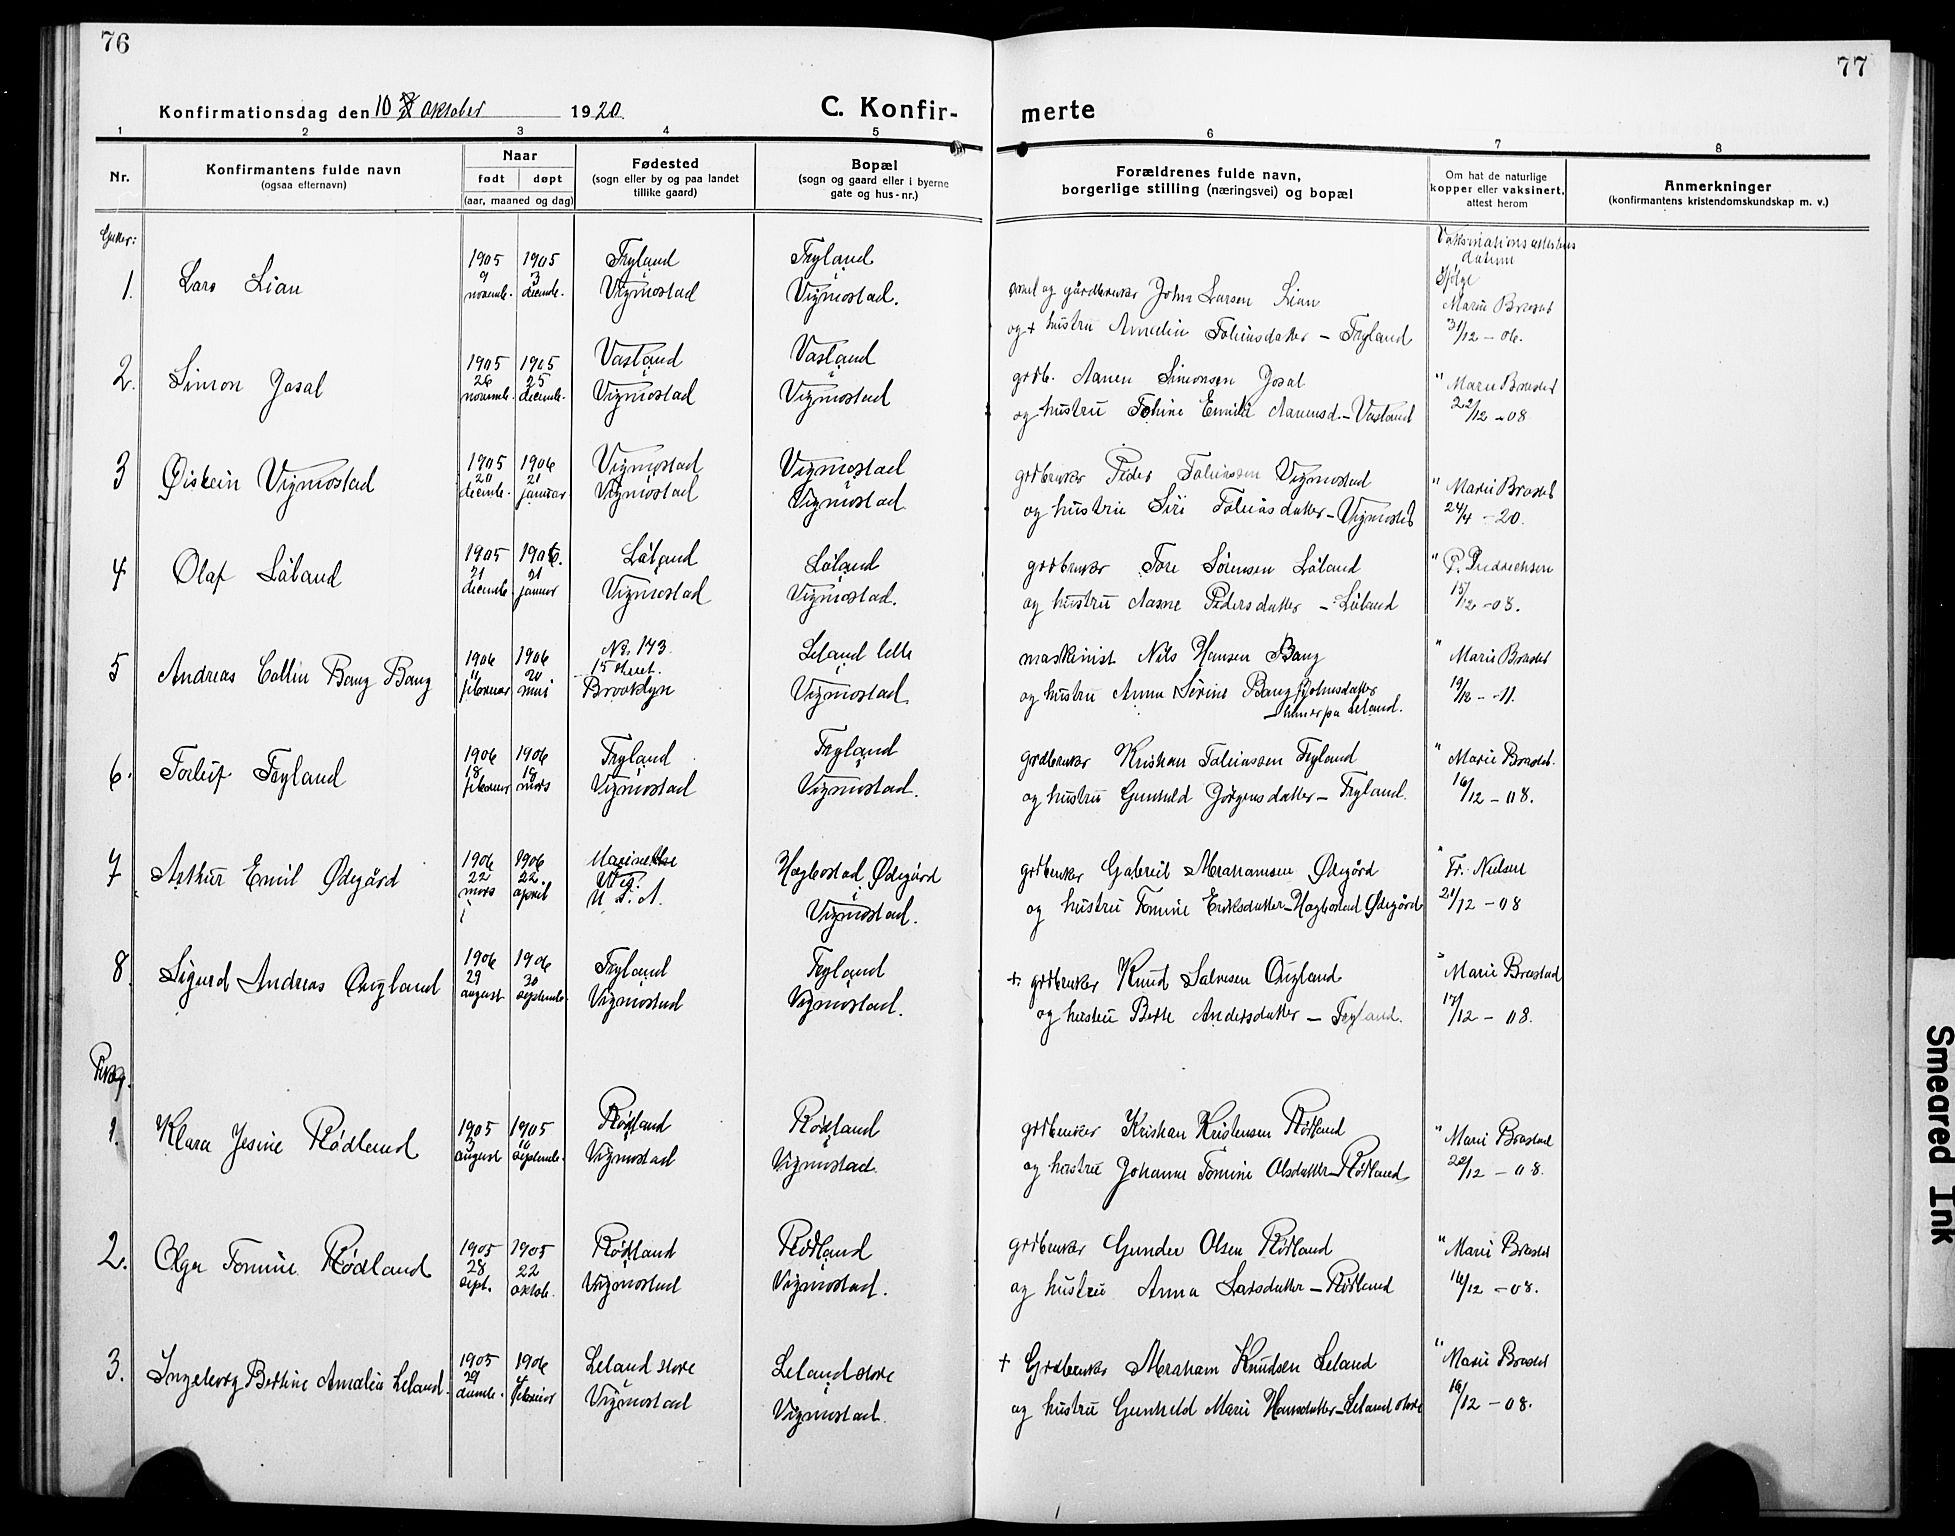 76
77
Konfirmationsdag den 10 oktober 1920.
C. Konfir-
merte
1 2 3 4 5
6 7 8
Nr.
Konfirmantens fulde navn
(ogsaa efternavn)
Naar
født døpt
(aar, maaned og dag)
Fødested
(sogn eller by og paa landet
tillike gaard)
Bopæl
(sogn og gaard eller i byerne
gate og hus-nr.)
Forældrenes fulde navn,
borgerlige stilling (næringsvei) og bopæl
Om hat de naturlige
kopper eller vaksinert,
attest herom
Anmerkninger
(konfirmantens kristendomskundskap m. v.)
Gutter:
Vaksinations attestens
datum
1. Lars Lian
1905 9 novembe.
1905 3 decembe.
Fryland i Vigmostad
Fryland i Vigmostad.
og gårdbruker John Larsen Lian
og + hustru Amelia Tobiasdatter – Fryland
Ifølge Marie Brastad
31/12 – 06.
2. Simon Josal
1905 26 novembe.
1905 25 decembe.
Vastand i Vigmostad
Vastand i Vigmostad
grdb. Aanen Simonsen Josal
og hustru Emilie Aanensd. – Vastand
" Marie Brastad
22/12 – 08
3 Øistein Vigmostad
1905 20 decembe.
1906 21 januar
Vigmostad i Vigmostad
Vigmostad i Vigmostad
grdbruker Peder Tobiassen Vigmostad
og hustru Siri Tobiasdatter – Vigmostad
" Marie Brastad
24/4 – 20.
4 Olaf Løland
1905 21 decembe.
1906. 21 januar
Løland i Vigmostad
Løland i Vigmostad.
grdbruker Tore Sørensen Løland
og hustru Aasne Pedersdatter – Løland
" P. Fredrichsen
15/12 – 08.
5 Andreas Collin Bang Bang
1906 11 februar
1906 20 mai
No. 173
15 street.
Brooklyn
Leland lille i Vigmostad
maskinist Nils Hansen Bang
og hustru Anna Serine Bang f. Johnsdatter
hun er pa Leland.
" Marie Brastad
19/12 – 11.
6. Torleif Fryland
1906 18 februar
1906 18 mars
Fryland i Vigmostad
Fryland i Vigmostad.
grdbruker Kristian Tobiassen Fryland
og hustru Gunhild Jörgensdatter – Fryland.
" Marie Brastad.
16/12 – 08.
7 Arthur Emil Ødegård
1906 22 mars
1906 22 april
U. S. A.
Hægbostad Ødegård i Vigmostad.
grdbruker Gabriel Abrahamsen Ødegård
og hustru Tomine Eriksdatter – Hægbostad Ødegård
" Fr. Nielsen
21/12 – 08
8. Sigurd Andreas Øugland
1906 29 august
1906 30 septembe.
Fryland i Vigmostad
Fryland i Vigmostad.
+ grdbruker Knud Salvesen Øugland
og hustru Berte Andersdatter – Fryland.
" Marie Brastad
17/12 – 08.
Piker.
1. Klara Jesine Rødland
1905 3 august
1905 10 septembe.
Rødland i Vigmostad
Rødland i Vigmostad.
grdbruker Kristian Kristensen Rødland
og hustru Johanne Tomine Olsdatter – Rødland
" Marie Brastad
22/12 – 08.
2. Olga Tomine Rødland
1905 28 sept.
1905 22 oktob.
Rødland i Vigmostad
Rødland i Vigmostad.
grdbruker Gunder Olsen Rødland
og hustru Anna Larsdatter – Rødland
" Marie Brastad
16/12 – 08.
3. Ingeborg Bertine Amalia Leland.
1905 29 decembe.
1906 4 februar
Leland store i Vigmostad
Leland store i Vigmostad.
+ Grdbruker Abraham Knudsen Leland
og hustru Gunhild Marie Hansdatter – Leland store
" Marie Brastad
16/12 – 08.
Smeared Ink